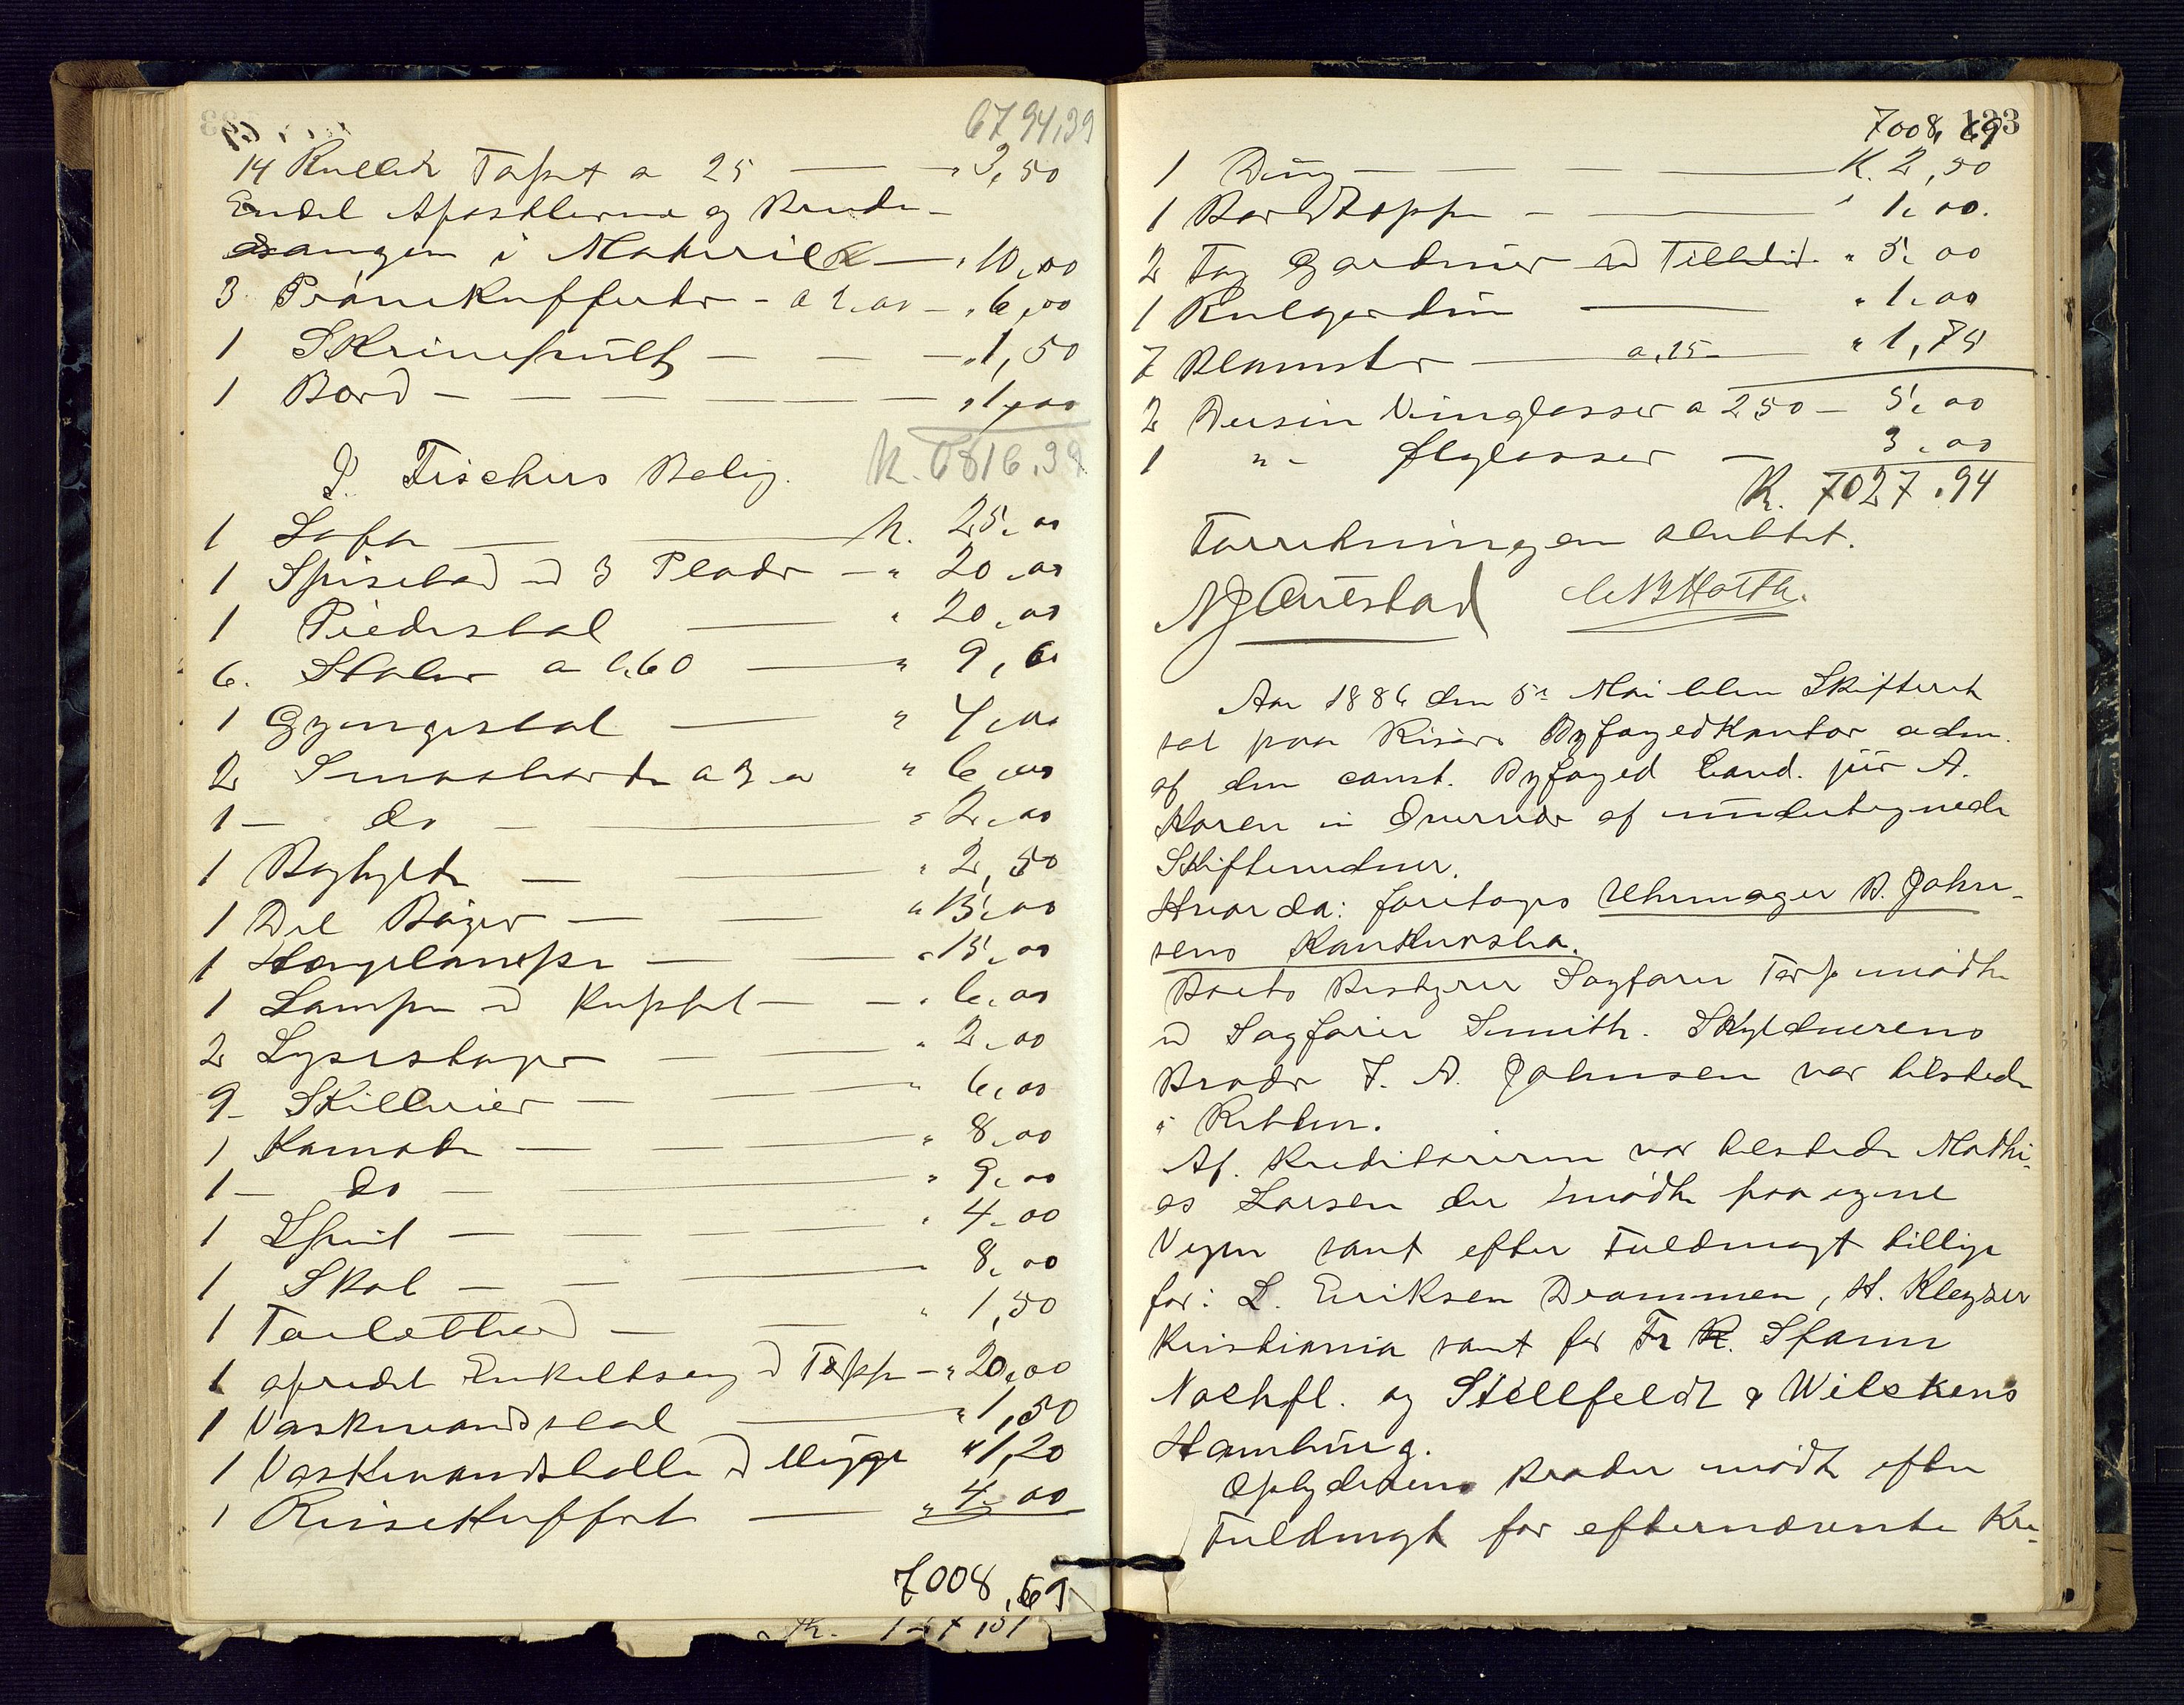 6794,39
14 Ruller Tapet a 25 — „ 3,50
Endel Apostlerne og Bonde-
sangen i Materiel — „ 10,00
3 Prøvekufferter - a 2,00 — „ 6,00
1 Skrivepult — „ 1,50
1 Bord — „ 1,00
K. 6816,39
I. Fischers Bolig.
1 Sofa — K. 25,00
1 Spisebord m 3 Plader — „ 20,00
1 Piedestal — „ 20,00
6. Stoler a 1,60 — „ 9,60
1 Gyngestol — „ 4,00
2 Smaaborde a 3,00 „ 6,00
1 — do — „ 2,00
1 Boghylde — „ 2,50
1 Del Bøger — „ 15,00
1 Hængelampe — „ 15,00
1 Lampe m Kuppel — „ 6,00
2 Lysestager — „ 2,00
9 Skillerier — „ 6,00
1 Komode — „ 8,00
1 — do — „ 9,00
1 Speil — „ 4,00
1 Skab — 8,00
1 Toiletbord — „ 1,50
1 opredet Enkeltseng m Teppe — „ 20,00
1 Vaskevandsstol — „ 1,50
1 Vaskevandsbolle m Mugge „ 1,20
1 Reisekuffert — „ 4,00
7008,69
133
7008,69
1 Dug — K. 2,50
1 Bordteppe — „ 1,00.
2 Fag Gardiner m Tilbeh. „ 5,00
1 Rulgardin — „ 1,00
7 Blomster — a,25 — „ 1,75
2 Dusin Vinglasser a 250 — 5,00
1 „ - Ølglasser — 3,00
K. 7027,94
Forretningen sluttet.
NJ Øuestad
Aar 1886 den 5te Mai blev Skifteret
sat paa Risørs Byfogedkontor adm.
af den const. Byfoged Cand. jur A.
Koren i Overvær af undertegnede
Skiftevidner.
Hvorda: foretoges Uhrmager B. John-
sens Konkursbo.
Boets Bestyrer Sagfører Terp mødte
m Sagfører Smith. Skyldnerens
Broder T. A. Johnsen var tilstede
i Retten.
Af Kreditorerne var tilstede Mathi-
as Larsen der mødte paa egne
Vegne samt efter Fuldmagt tillige
for: L. Eriksen Drammen, H. Kleyser
Kristiania samt for Fr R. Spann
Nachfl. og Stellfeldt & Wilskens
Hamburg.
Opbyderens Broder mødte efter
Fuldmagt for efternævnte Kre-